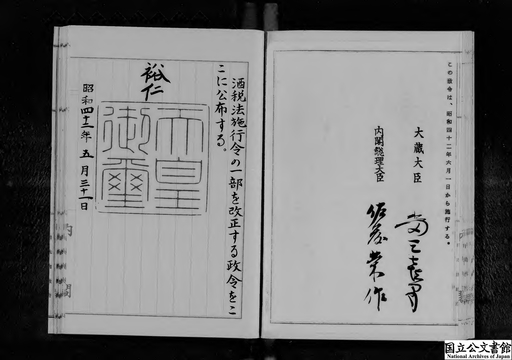 この政令は、昭和四十二年六月一日から施行する。
大蔵大臣
水田三喜男
内閣総理大臣
佐藤榮作
酒税法施行令の一部を改正する政令をこ
こに公布する。
裕仁
天皇
御璽
昭和四十二年五月三十一日
国立公文書館
National Archives of Japan